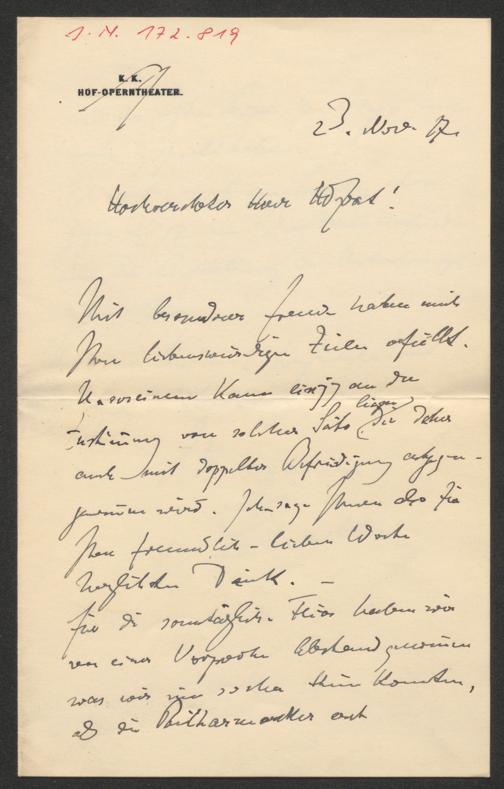 J.N. 172.819
K. K.
HOF-OPERNTHEATER.
23. Nov. 17.
Hochverehrter Herr Hofrat!
Mit besonderer Freude haben mich
Ihre liebenswürdigen Zeilen erfüllt.
Unsereinem kann einzig an der
liegen
Zustimmung von solcher Seite die daher
auch mit doppelter Befriedigung entgegen-
genommen wird. Ich sage Ihnen also für
Ihre freundlich-lieben Worte
herzlichsten Dank. –
Für die sonntägliche Feier haben wir
von einer Vorprobe Abstand genommen
was wir um so eher thun konnten,
als die Philharmoniker erst